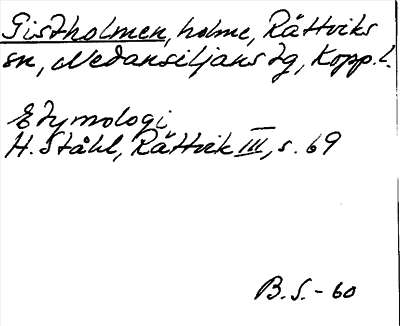 Gistholmen, holme, Rättviks
sn, Nedansiljans tg, Kopp. l.
Etymologi
H. Ståhl, Rättvik III, s. 69
B. S. - 60